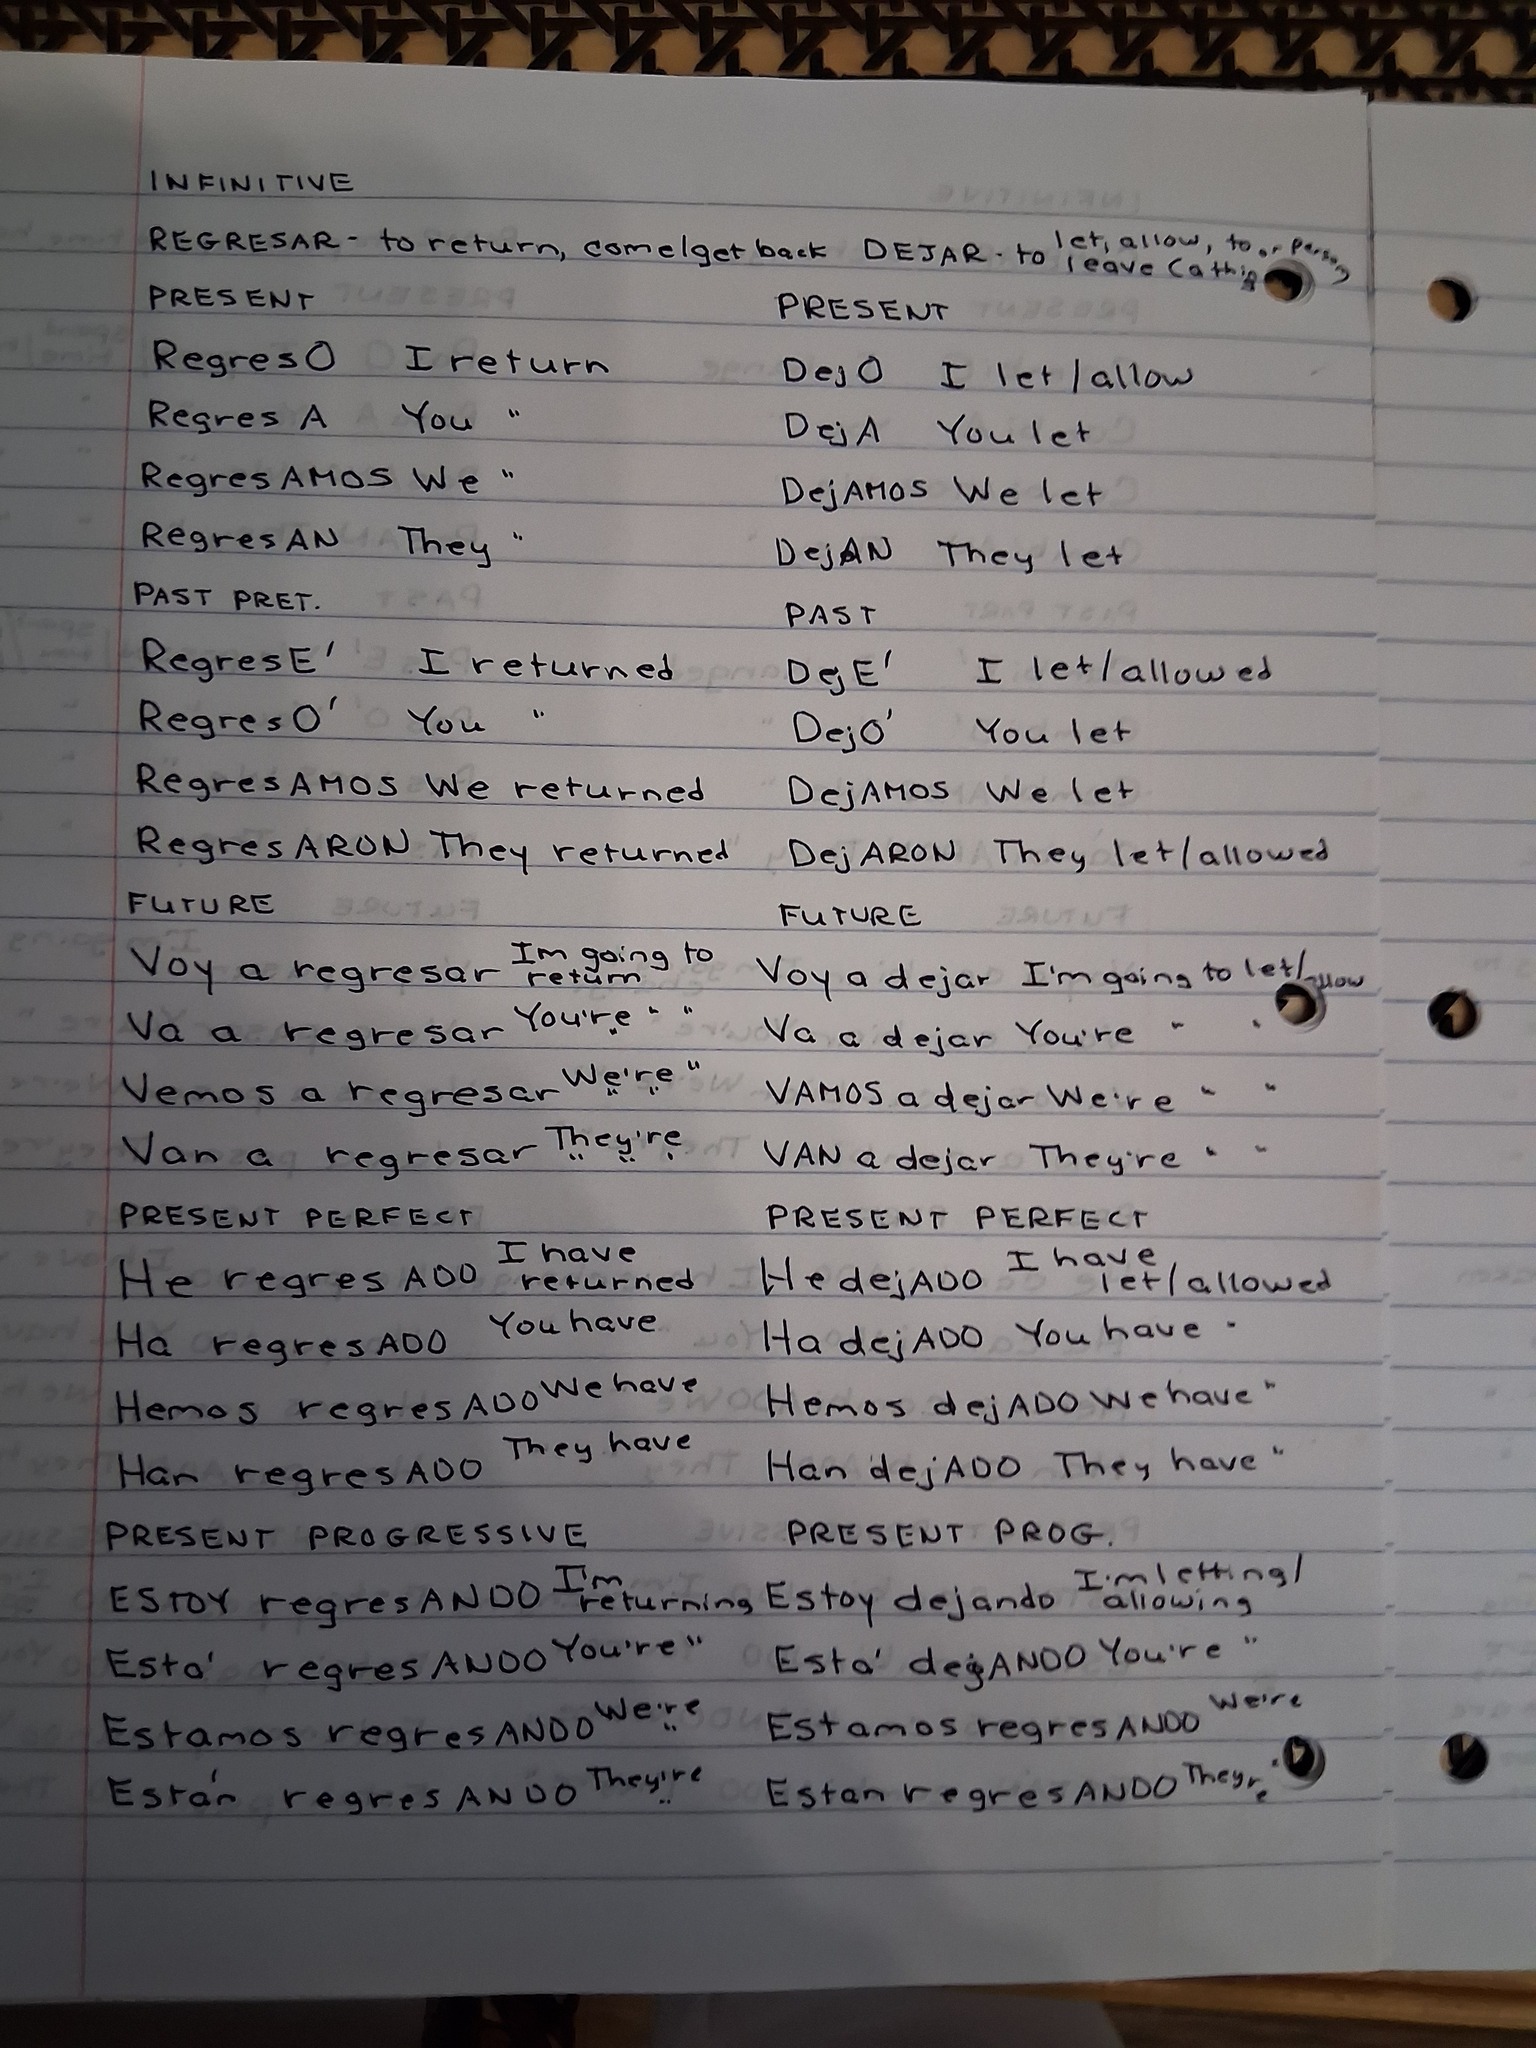 INFINITIVE
REGRESAR - to return, come/get back DEJAR - to let, allow, to leave (a thing or person)
PRESENT PRESENT
RegresO I return DejO I let/allow
RegresA You " DejA You let
RegresAMOS We " DejAMOS We let
RegresAN They " DejAN They let
PAST PRET. PAST
RegresE' I returned DejE' I let/allowed
RegresO' You " DejO' You let
RegresAMOS We returned DejAMOS We let
RegresARON They returned DejARON They let/allowed
FUTURE FUTURE
Voy a regresar Im going to return Voy a dejar I'm going to let/allow
Va a regresar You're " " Va a dejar You're " "
Vemos a regresar We're " " " VAMOS a dejar We're " "
Van a regresar They're " " " VAN a dejar They're " "
PRESENT PERFECT PRESENT PERFECT
He regresADO I have returned He dejADO I have let/allowed
Ha regresADO You have Ha dejADO You have "
Hemos regresADO We have Hemos dejADO We have "
Han regresADO They have Han dejADO They have "
PRESENT PROGRESSIVE PRESENT PROG.
ESTOY regresANDO I'm returning Estoy dejando I'm letting/allowing
Esta' regresANDO You're " Esta' dejANDO You're "
Estamos regresANDO We're " Estamos regresANDO We're
Están regresANDO They're " Estan regresANDO They're "